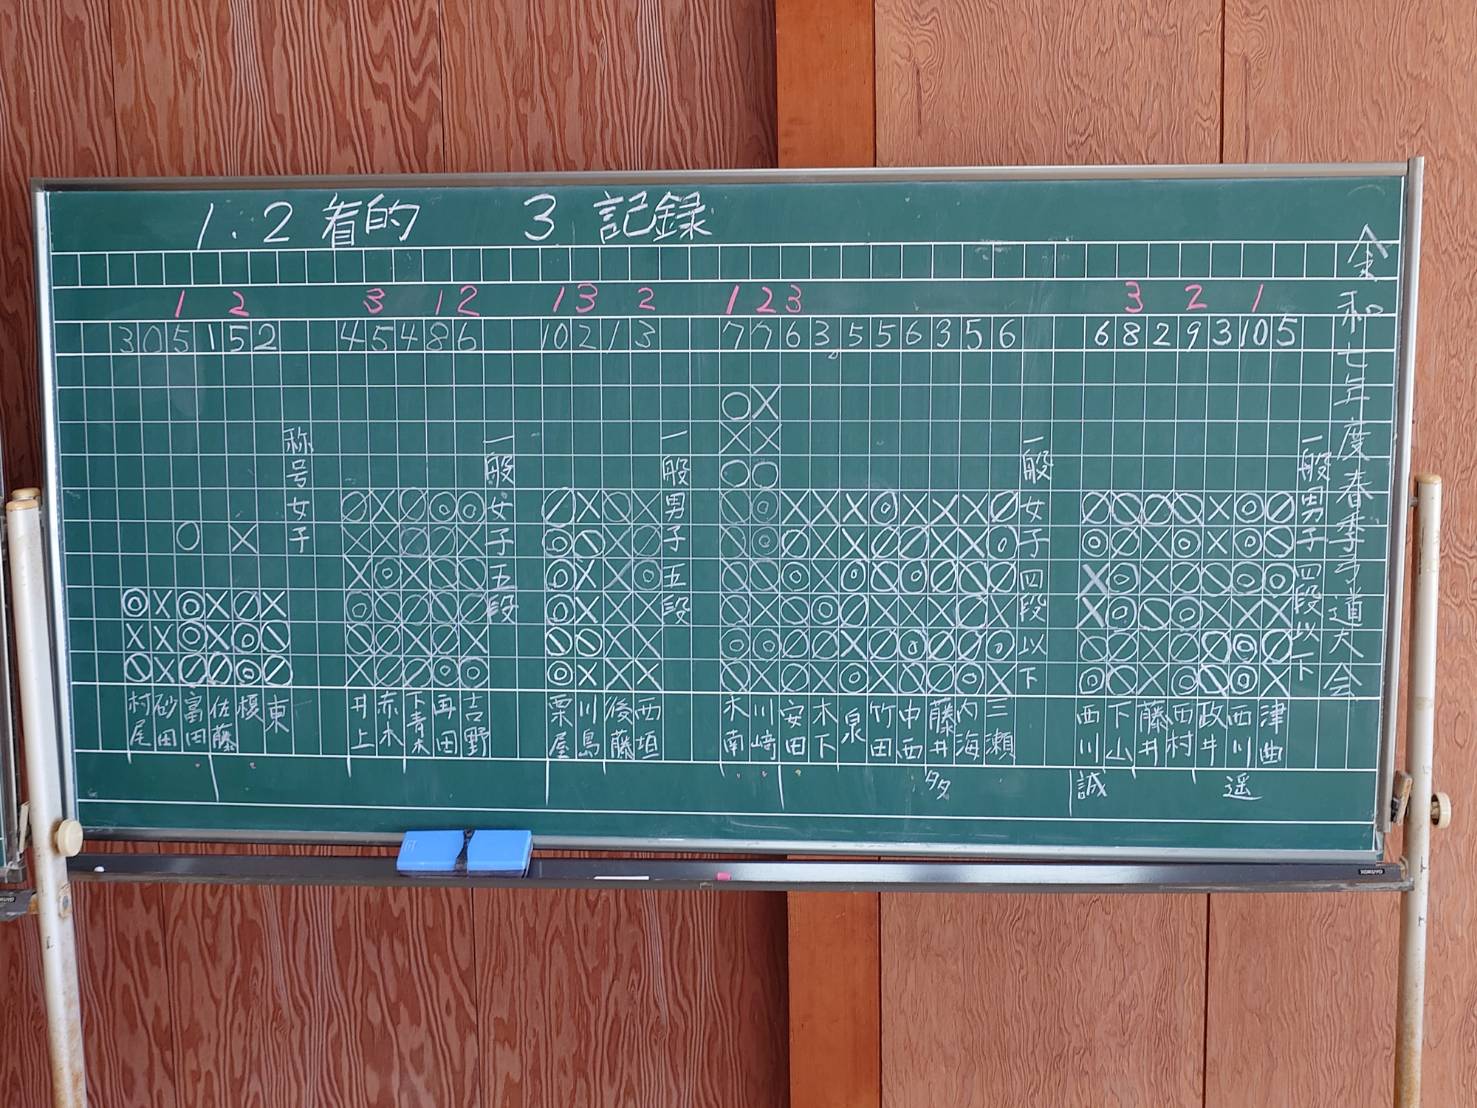 1.2 着的 3 記録
令和七年度春季弓道大会
1 2 3 1 2 1 3 2 1 2 3 3 2 1
3 0 5 1 5 2 4 5 4 8 6 10 2 1 3 7 7 6 3 5 5 6 3 5 6 6 8 2 9 3 10 5
一般男子四段以下
津曲
西川 遥
政井
西村
藤井
下山
西川 誠
一般女子四段以下
三瀬
内海
藤井 多
中西
竹田
泉
木下
安田
川崎
木南
一般男子五段
西垣
後藤
川島
栗屋
一般女子五段
吉野
再田
下青木
赤木
井上
称号女子
東
榎
佐藤
富田
砂田
村尾